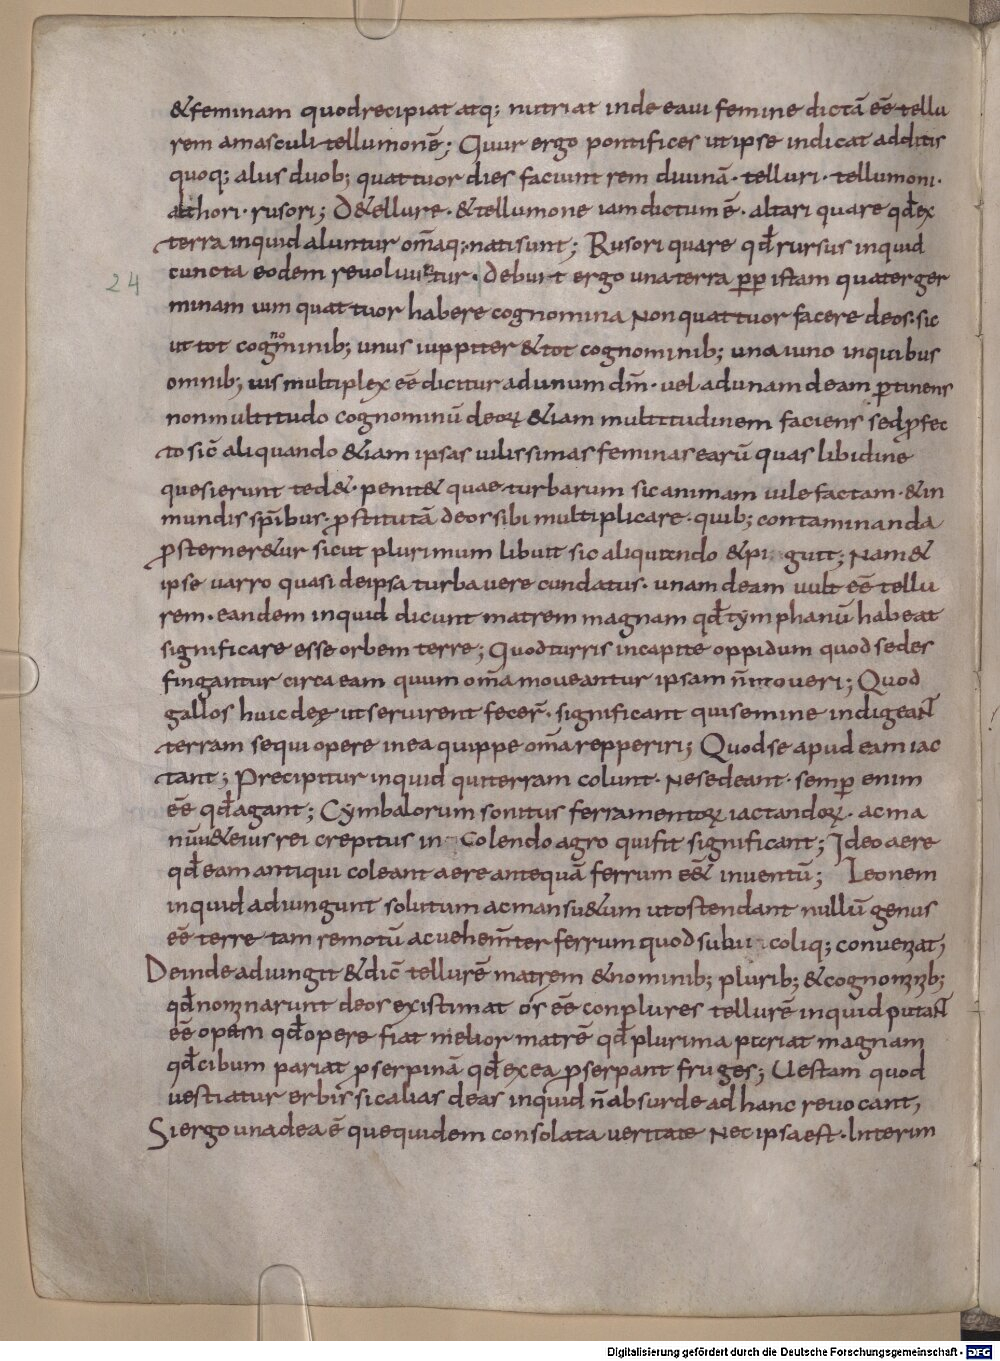 &feminam quodrecipiat atq; nutriat inde eaui femine dictā eē tellu
rem amasculi tellumonē; Quur ergo pontifices ut ipse indicat additis
quoq; aliis duob; quattuor dies faciunt rem diuinā· telluri· tellumoni·
althori· rusori; D&ellure· &tellumone iam dictum ē· altari quare qđ ex
terra inquid aluntur om̄aq; nati sunt; Rusori quare qđ rursus inquid
cuncta eodem reuoluuntur· Debuit ergo una terra ꝓp istam quater ger
minam uim quattuor habere cognomina Non quattuor facere deos· sic
ut tot cogminib; unus iuppiter &tot cognominib; una iuno inquibus
no
omnib; uis multiplex eē dicitur ad unum dm̄· uel ad unam deam ꝑtinens
non multitudo cognominū deoꝝ &iam multitudinem faciens sed ꝓfec
to sic̄ aliquando &iam ipsas uilissimas feminas earū quas libidine
quesierunt ted&· penit& quae turbarum sic animam uile factam· &in
mundis sp̄ibus· ꝓstitutā deos sibi multiplicare· quib; contaminanda
ꝓsterner&ur sicut plurimum libuit sic aliquando &pi guit; Nam &
ipse uarro quasi de ipsa turba uerecundatus· unam deam uult eē tellu
rem· eandem inquid dicunt matrem magnam qđ tymphanū habeat
significare esse orbem terre; Quod turris in capite oppidum quod sedes
fingantur circa eam quum om̄a moueantur ipsam n̄ moueri; Quod
gallos huic deę ut seruirent fecer̄· significant qui semine indigeaNT
terram sequi opere in ea quippe om̄a repperiri; Quod se apud eam iac
tant; Precipitur inquid qui terram colunt· Ne sedeant· semꝑ enim
eē qđ agant; Cymbalorum sonitus ferramentoꝝ iactandoꝝ· ac ma
nuū &eius rei crepitus in Colendo agro qui fit significant; Ideo aere
qđ eam antiqui coleant aere antequā ferrum eē& inuentū; Leonem
inquid adiungunt solutum ac mansu&um ut ostendant nullū genus
eē terre tam remotū ac uehem̄ter ferrum quod subii coliq; conueniat;
Deinde adiungit &dic̄ tellurē matrem &nominib; plurib; &cognominib;
qđ nominarunt deos existimat os eē conplures tellurē inquid putaNT
eē opem qđ opere fiat melior matrē qđ plurima pariat magnam
qđ cibum pariat ꝓserpinā qđ ex ea ꝓserpant fruges; Uestam quod
uestiatur erbis sic alias deas inquid n̄ absurde ad hanc reuocant;
Si ergo una dea ē que quidem consolata ueritate Nec ipsa est· Interim
24
Digitalisierung gefördert durch die Deutsche Forschungsgemeinschaft - DFG